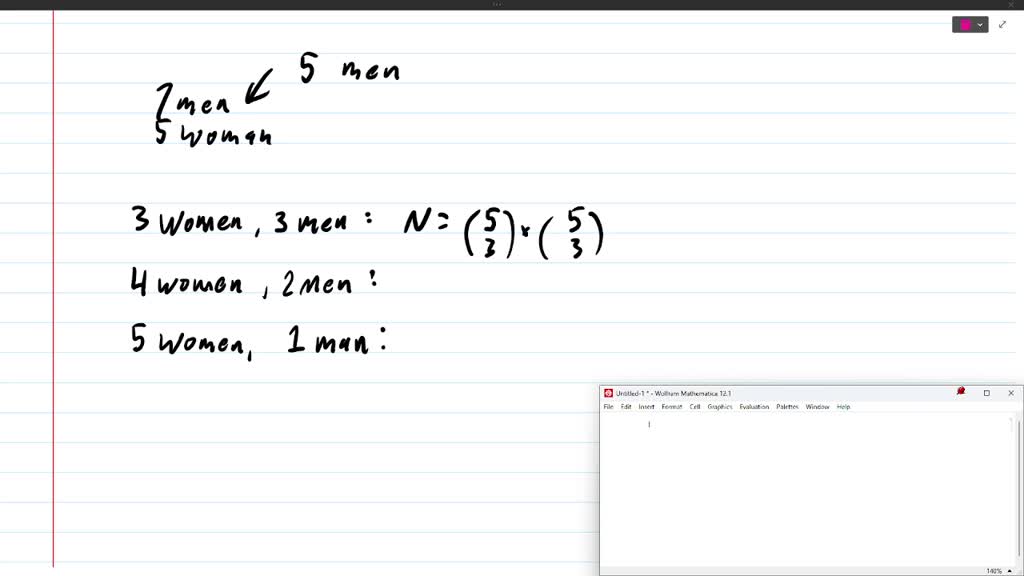 5 men
7 men
5 woman
3 women, 3 men: N = (5 3) * (5 3)
4 women, 2 men:
5 women, 1 man:
Untitled-1 * - Wolfram Mathematica 12.1
File Edit Insert Format Cell Graphics Evaluation Palettes Window Help
140%